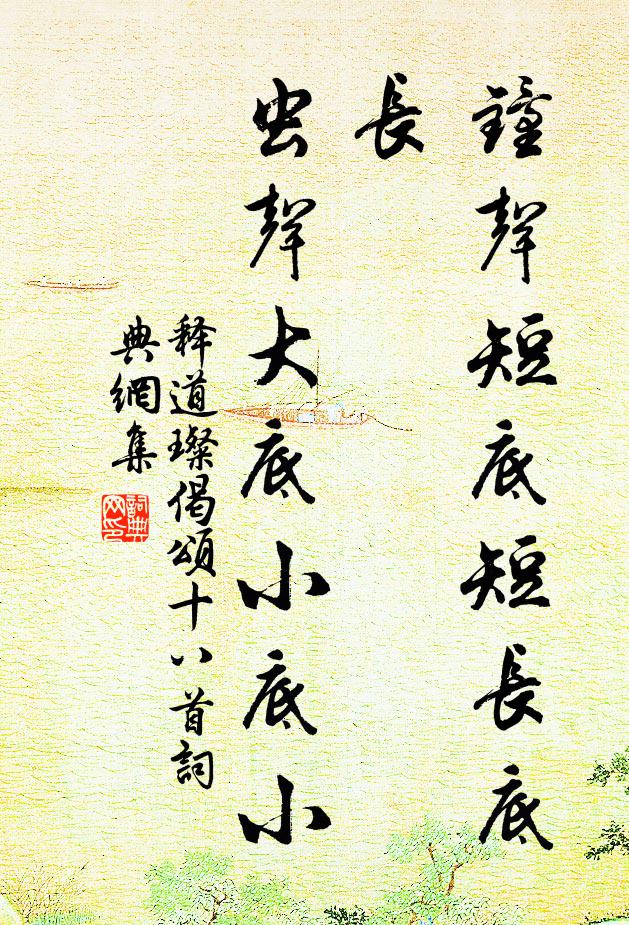 鐘聲短底短長底
長
虫聲大底小底小
释道璨偈頌十八首詞
典網集
詞典
网印